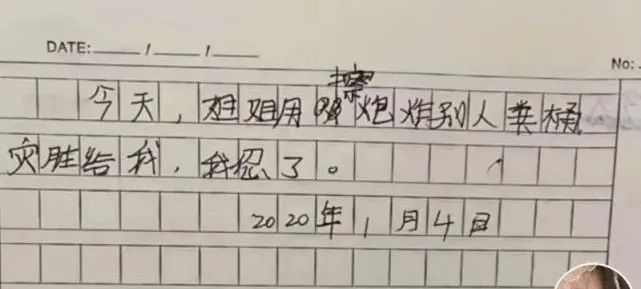 DATE: / /
No:
今天，姐姐用擦炮炸别人粪桶
灾胜给我，我忍了。
2020年1月4日